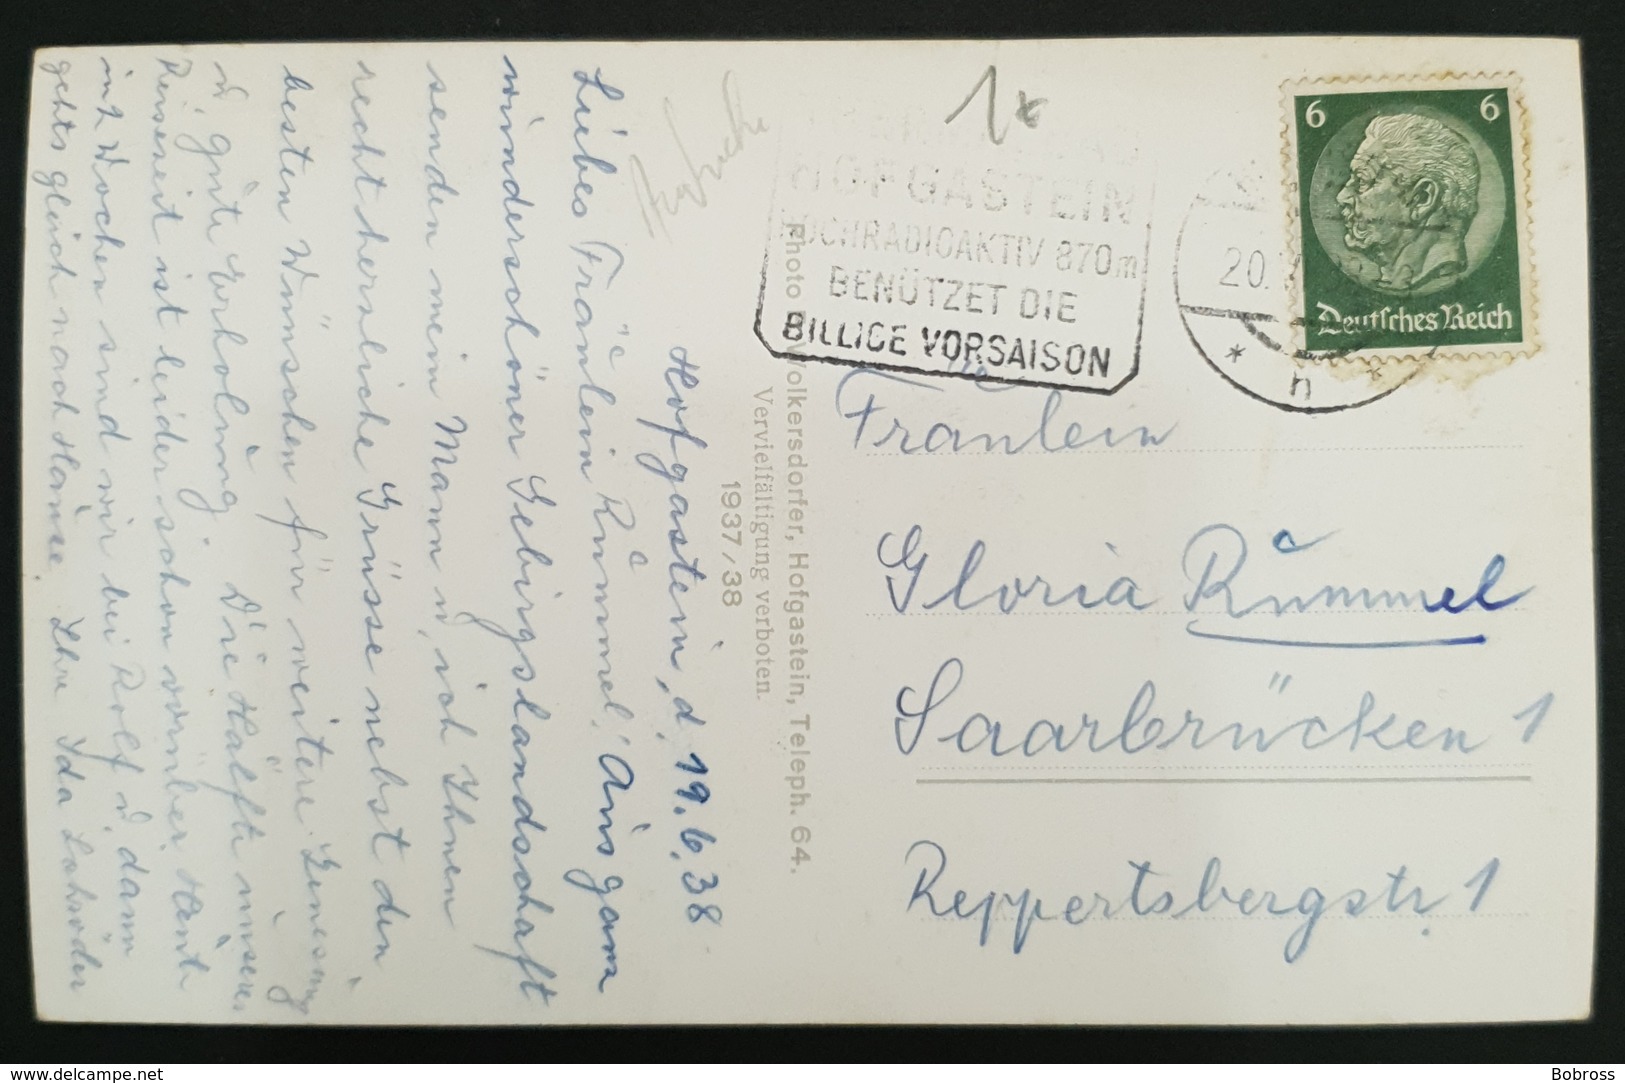 1x
HOFGASTEIN
HOCHRADIOAKTIV 870m
BENÜTZET DIE
BILLIGE VORSAISON
20.
n
6 6
Deutsches Reich
Fräulein
Gloria Rummel
Saarbrücken 1
Reppertsbergstr. 1
Photo Volkersdorfer, Hofgastein, Teleph. 64.
Vervielfältigung verboten.
1937/38
Hofgastein, d. 19.6.38
Liebes Fräulein Rummel! Aus ganz
wunderschöner Gebirgslandschaft
senden mein Mann u. ich Ihnen
recht herzliche Grüsse nebst den
besten Wünschen für weitere Genesung
u. gute Erholung. Die Hälfte unserer
Reisezeit ist leider schon vorüber. Heute
in 2 Wochen sind wir bei Rolf u. dann
gehts gleich nach Hause. Ihre Ida
Bobross
www.delcampe.net